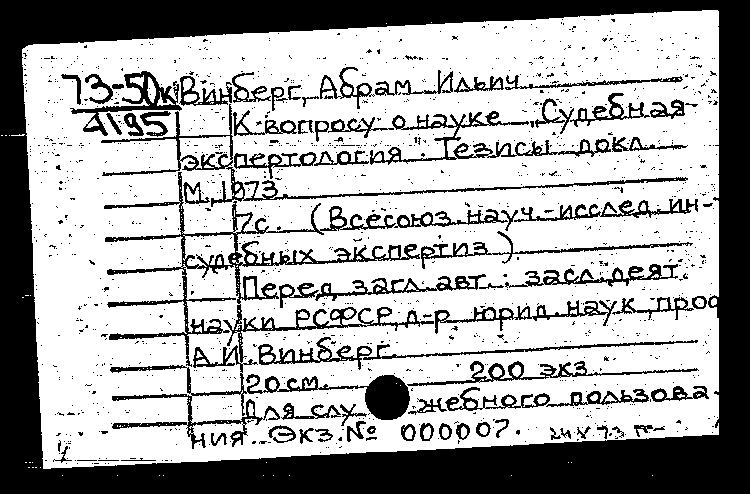 73-50к Винберг, Абрам Ильич.
4195 К вопросу о науке "Судебная
экспертология". Тезисы докл.
М., 1973.
7с. (Всесоюз. науч.-исслед. ин-
судебных экспертиз)
Перед загл. авт.: засл. деят.
науки РСФСР, д-р юрид. наук, проф
А.И. Винберг.
20см. 200 экз.
Для служебного пользова-
ния. Экз. № 000007. 24 V 73
4